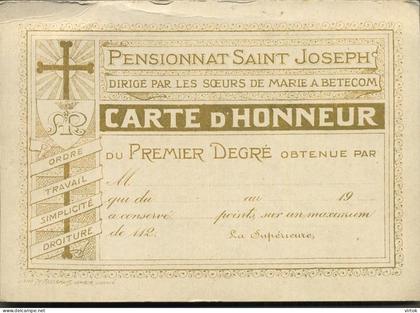 PENSIONNAT SAINT JOSEPH
DIRIGÉ PAR LES SŒURS DE MARIE A BETECOM
CARTE D'HONNEUR
DU PREMIER DEGRÉ OBTENUE PAR
M
qui du au 19
a conservé points, sur un maximum
de 112. La Supérieure,
ORDRE
TRAVAIL
SIMPLICITÉ
DROITURE